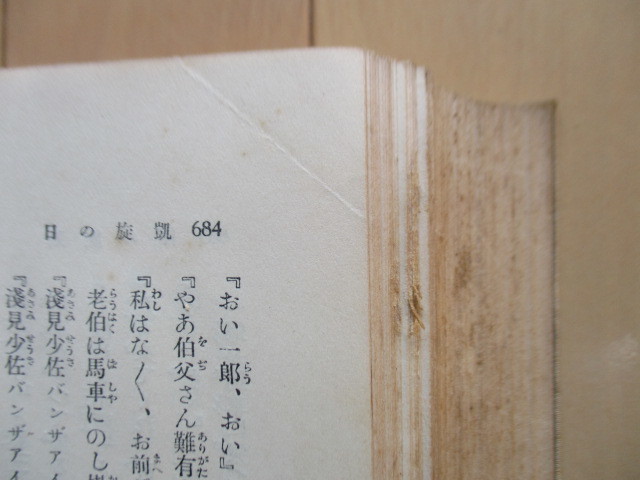 684 凱旋の日
『おい一郎、おい』
『やあ伯父さん難有
『私はなく、お前
老伯は馬車にのし
『淺見少佐バンザアイ
『淺見少佐バンザアイ